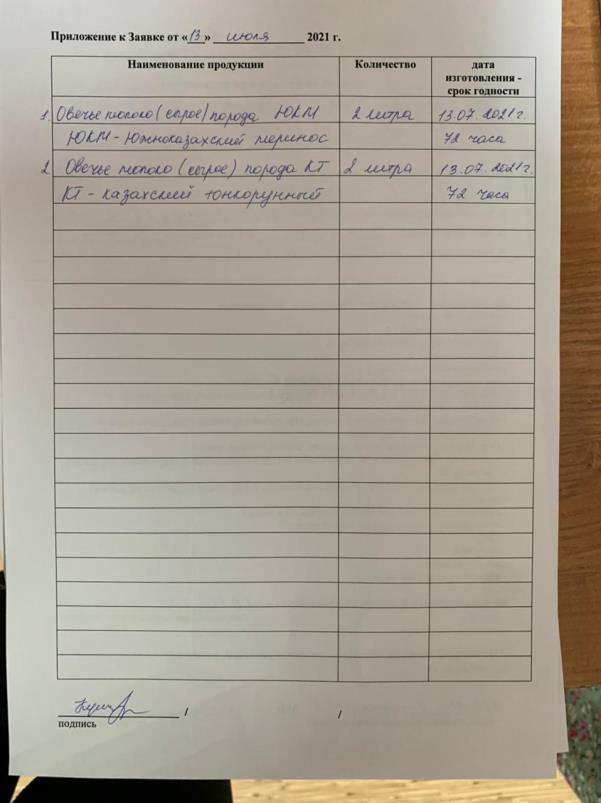 Приложение к Заявке от «13» июля 2021 г.
Наименование продукции Количество дата изготовления - срок годности
1. Овечье молоко (сырое) порода ЮКМ 2 литра 13.07.2021г.
ЮКМ - Южноказахский меринос 72 часа
2. Овечье молоко (сырое) порода КТ 2 литра 13.07.2021г.
КТ - казахский тонкорунный 72 часа
/ /
подпись